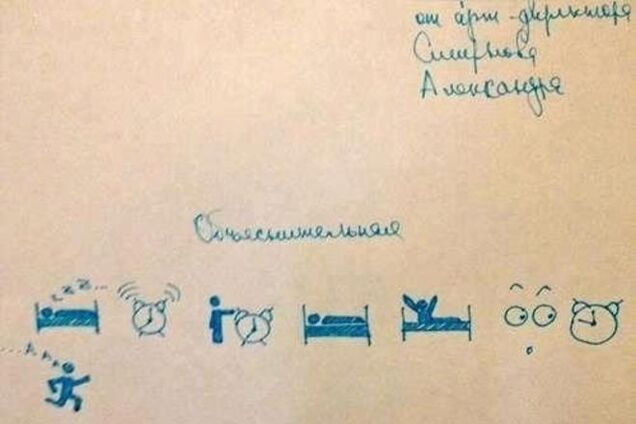 от арт-директора
Смирнова
Александра
Объяснительная
zzz...
...А А А А